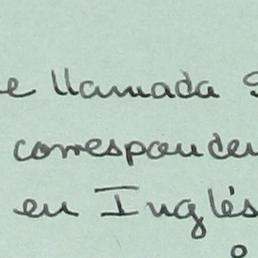 e llamada
corresponden
en Inglés